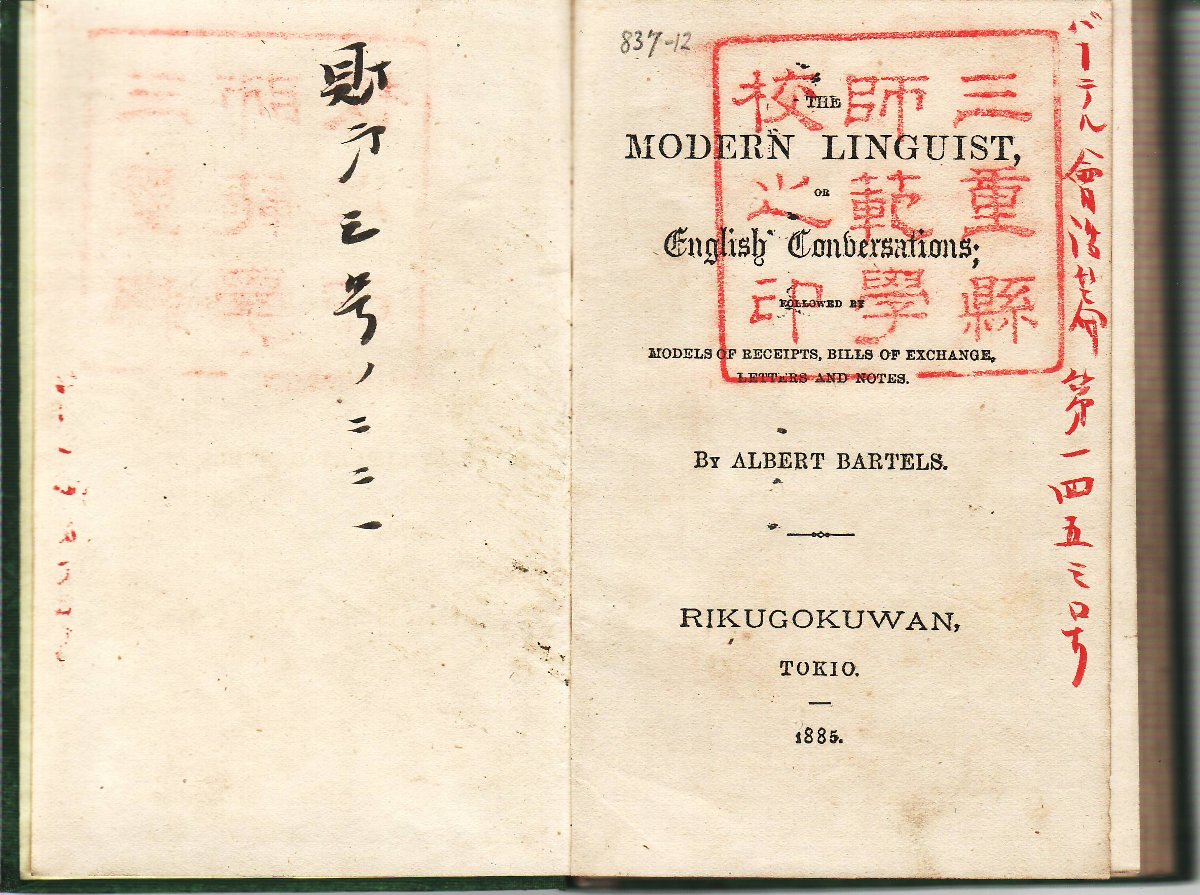 号ノ二二一
837-12
THE
MODERN LINGUIST,
OR
English Conversations;
FOLLOWED BY
MODELS OF RECEIPTS, BILLS OF EXCHANGE,
LETTERS AND NOTES.
By ALBERT BARTELS.
RIKUGOKUWAN,
TOKIO.
1885.
三重縣
師範學
校之印
バーテル會話篇 第一四五三〇号